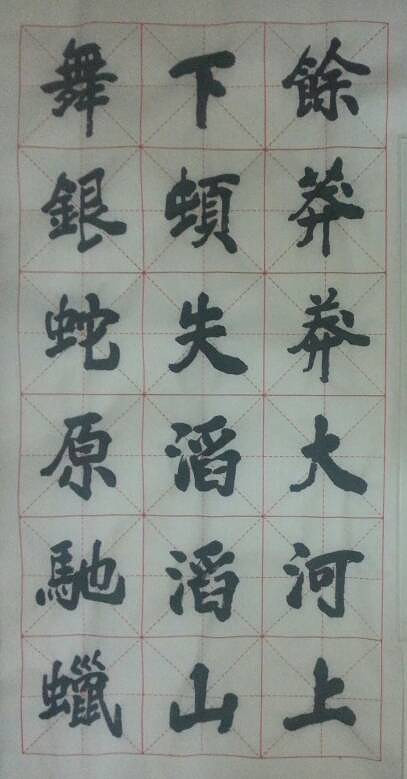 餘莽莽大河上
下頓失滔滔山
舞銀蛇原馳蠟